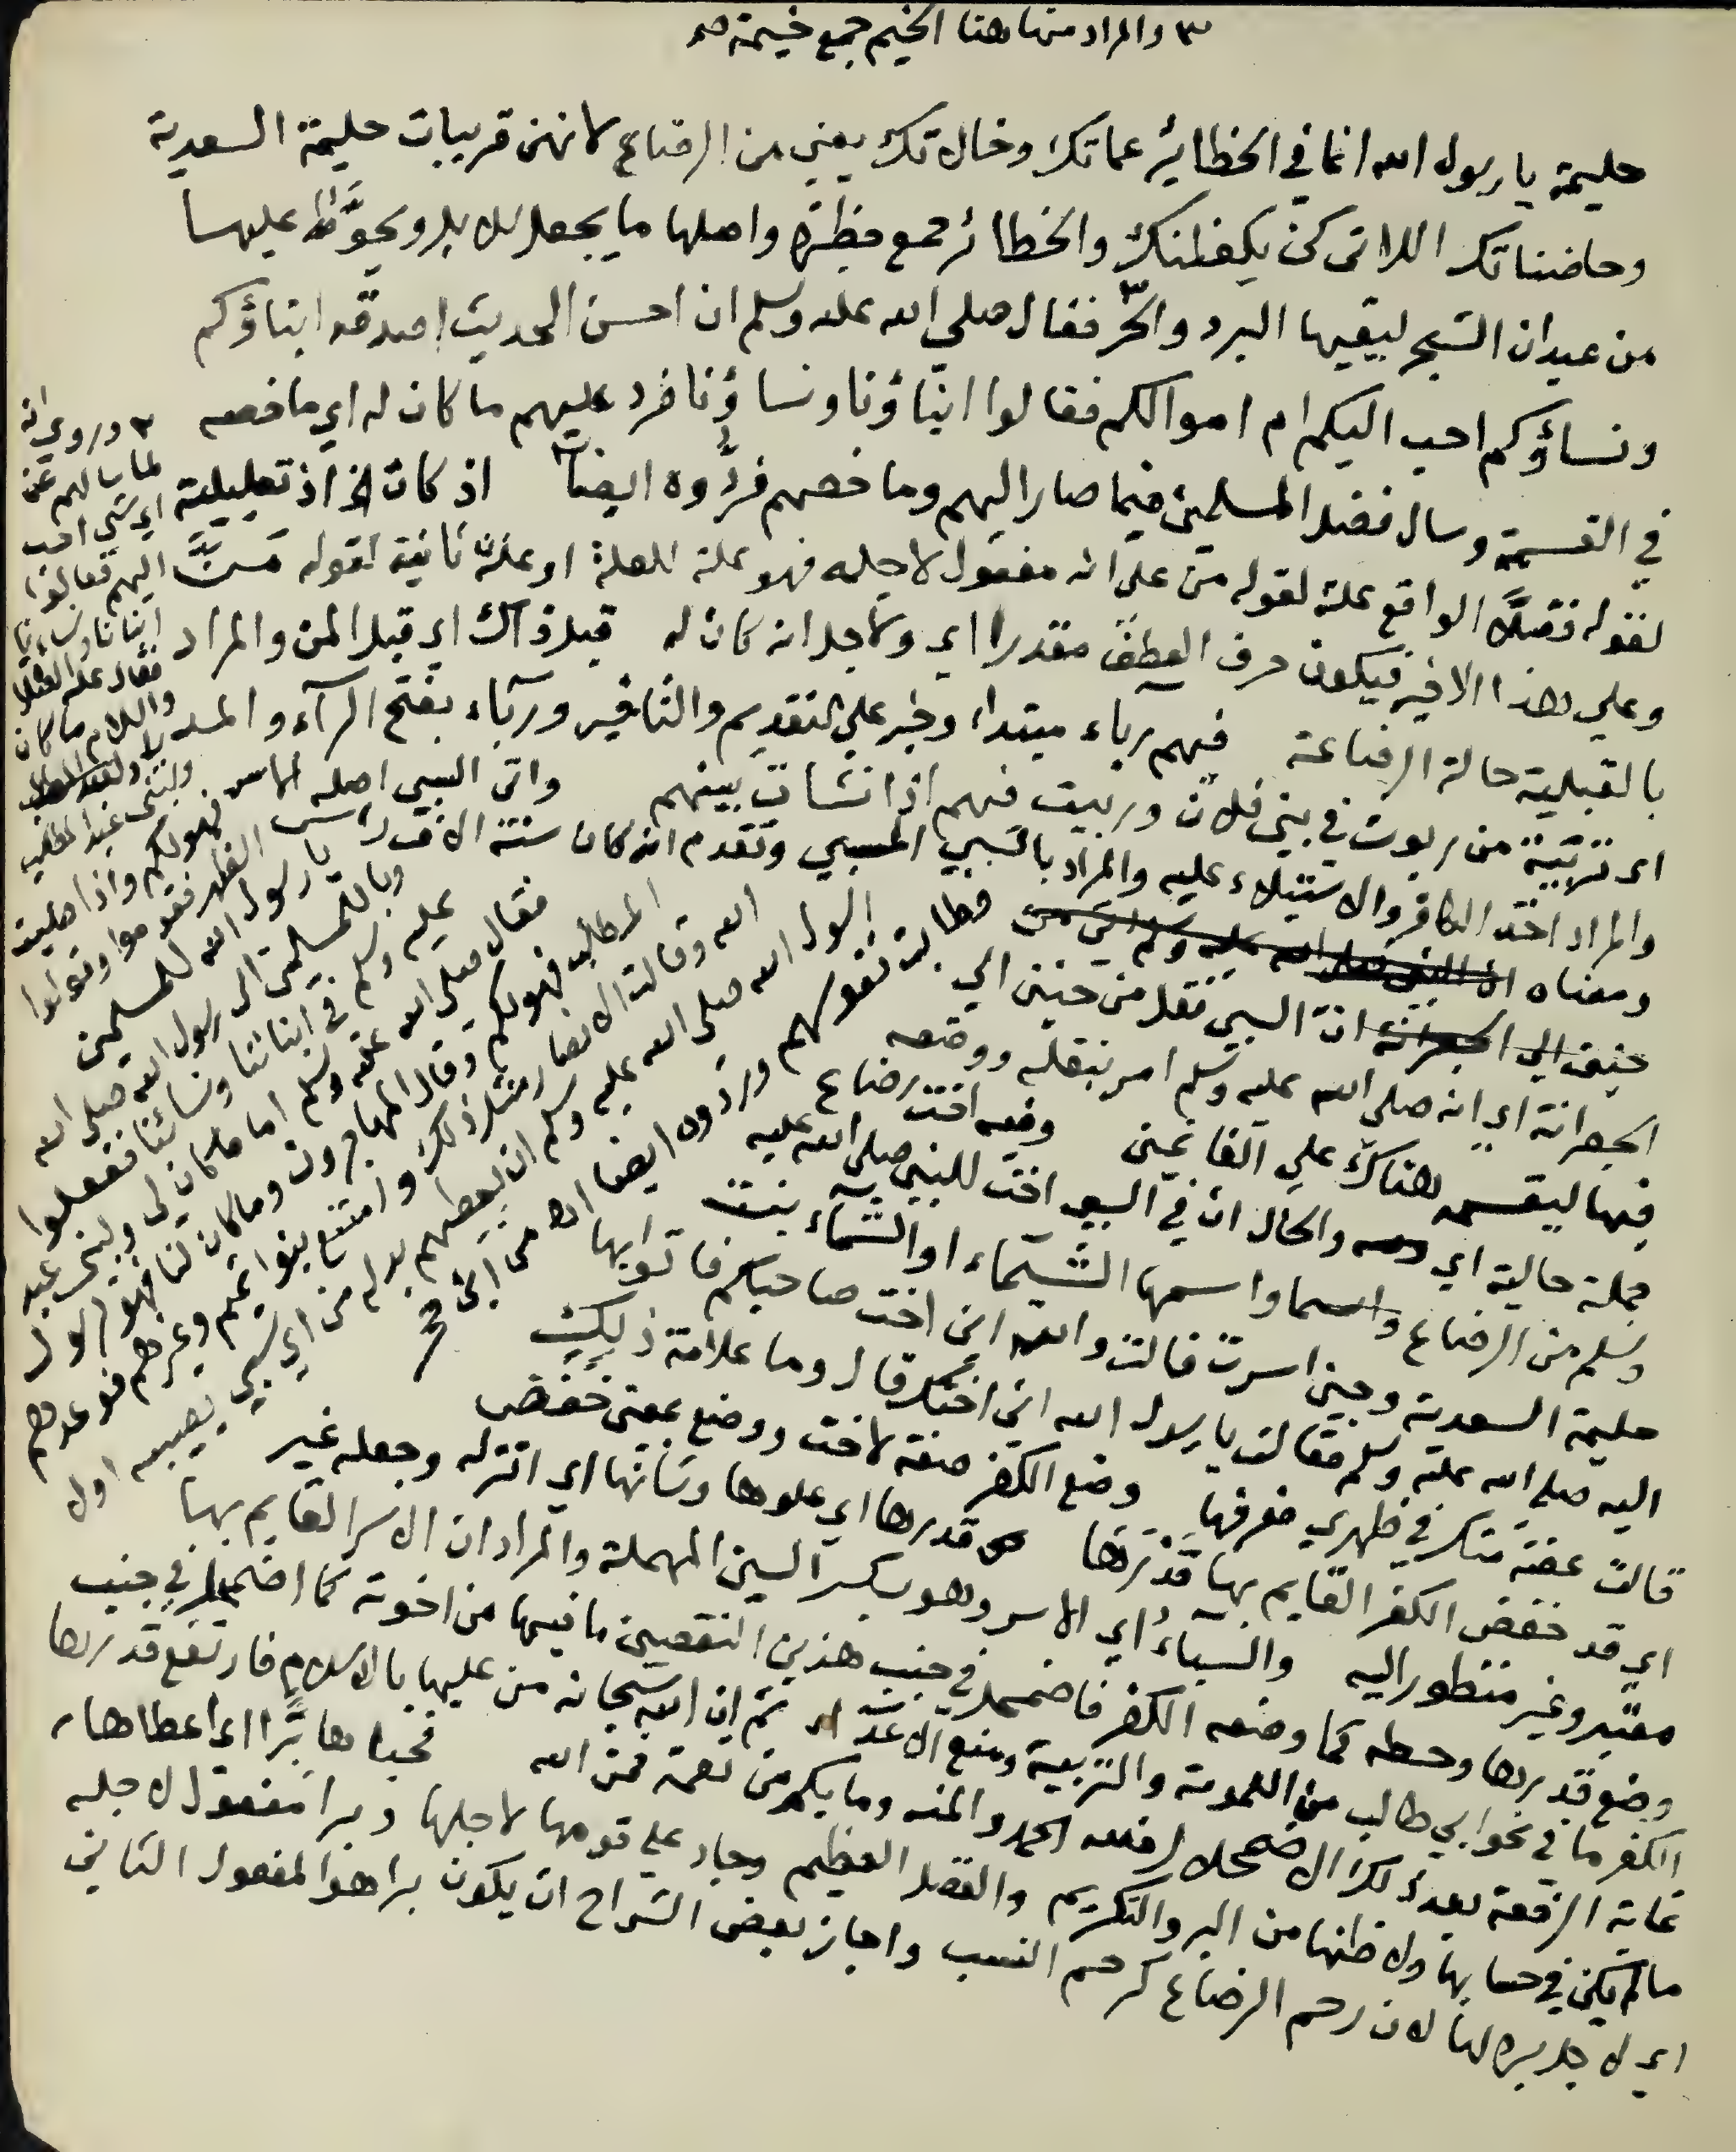 ٣ والمراد منها هنا الخيم جمع خيمة صح
حليمة يا رسول الله انما في الحظائر عماتك وخالاتك يعني من الرضاع لانهن قريبات حليمة السعدية
وحاضناتك اللاتي كن يكفلنك والحظائر جمع حظيرة واصلها ما يجعل للابل ويحوَّط عليها
من عيدان الشجر ليقيها البرد والحرّ فقال صلى الله عليه وسلم ان احسن الحديث اصدقه ابناؤكم
ونساؤكم احب اليكم ام اموالكم فقالوا ابناؤنا ونساؤنا فرد عليهم ما كان له اي ما خصه
في القسمة وسال فضل المسلمين فيما صار اليهم وما خصهم فردُّوه ايضا اذ كان الخ اذ تعليلية
لقوله فضلًا الواقع علة لقوله منّ على انه مفعول لاجله فهو علة للعلة او علة ثانية لقوله مَنَّ
وعلى هذا الاخير فيكون حرف العطف مقدرا اي ولاجل انه كان له قبل ذاك اي قبل المن والمراد
بالقبلية حالة الرضاعة فيهم رباء مبتداء وخبر على التقديم والتاخير ورباء بفتح الرآء والمد
اى تربية من ربوت في بني فلان وربيت فيهم اذا نشات بينهم واتى السبي اصله
والمراد اخذ الكافر والاستيلاء عليه والمراد بالسبي المسبي وتقدم انه كان ستة الاف راس
ومعناه ان النبي صلى الله عليه وسلم اتى من
حنين الى الجعرانة ان السبي نقل من حنين الى
الجعرانة اي انه صلى الله عليه وسلم امر بنقله ووضعه
فيها ليقسمه هناك على الغانمين وفيه اخت رضاع
جملة حالية اي والحال ان في السبي اخت للنبي صلى الله عليه
وسلم من الرضاع واسمها الشيماء او الشماء بنت
حليمة السعدية وحين اسرت قالت والله اني اخت صاحبكم فاتوا بها
اليه صلى الله عليه وسلم فقالت يا رسول الله اني اختك قال وما علامة ذلك
قالت عضة منك في ظهري فعرفها وضع الكفر صفة لاخت ووضع بمعنى خفض
اي قد خفض الكفر القايم بها قدرها قدرها اي علوها وشانها اي انزله وجعله غير
معتبر وغير منظور اليه والسباء اي الاسر وهو بكسر السين المهملة والمراد ان الاسر القايم بها
وضع قدرها وحطه كما وضعه الكفر فاضمحل في جنب هذين النقصين ما فيها من اخوته كما اضمحل في جنب
الكفر ما في نحو ابي طالب من العمومة والتربية ومنع الاعداء ثم ان الله سبحانه من عليها بالاسلام فارتفع قدرها
غاية الرفعة بعد ذلك الاضمحلال فلله الحمد والمنه وما بكم من نعمة فمن الله فحباها برًّا اي اعطاها
ما لم يكن في حسابها ولا ظنها من البر والتكريم والفضل العظيم وجاد على قومها لاجلها وبرا مفعول لاجله
اي لاجل بره لها لان رحم الرضاع كرحم النسب واجاز بعض الشراح ان يكون برا هو المفعول الثاني
٣ وروي انه
لما سالهم عن
اي شي احب
اليهم فقالوا
ابناءنا ونساءنا
فقال عليه الصلاة
والسلام ما كان
لي
ولبني عبد المطلب
فهو لكم واذا صليت
الظهر فقوموا وقولوا
يا رسول الله للمسلمين
وبالمسلمين الى رسول الله صلى الله
عليه وسلم في ابنائنا ونسائنا ففعلوا
فقال صلى الله عليه وسلم اما ما كان لي ولبني عبد
المطلب فهو لكم وقال المهاجرون وما كان لنا فهو لرسول
الله وقالت الانصار مثل ذلك وامتنع بنوا تميم وغيرهم فوعدهم
رسول الله صلى الله عليه وسلم ان يعطيهم بدله من اي سبي يصيبه اول
فطابت نفوسهم وردوه ايضا اهـ من ابن حجر